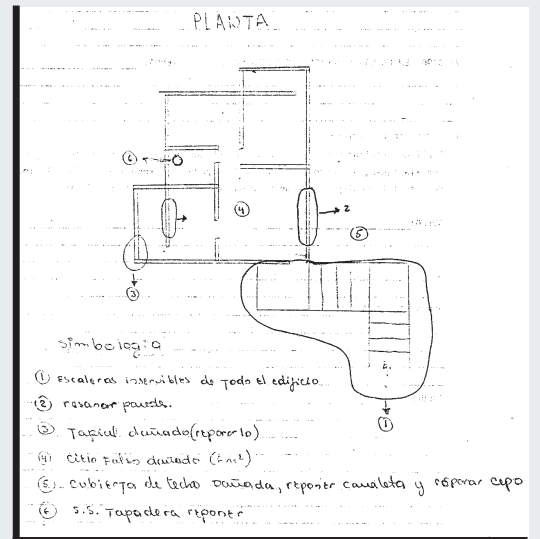 PLANTA
6
4
2
5
3
1
simbologia
1 Escaleras inservibles de todo el edificio
2 resanar pared.
3 Tapial dañado (repararlo)
4 Cielo Falso dañado
5 cubierta de techo Dañada, reponer canaleta y reparar cepo
6 S.S. Tapadera reponer